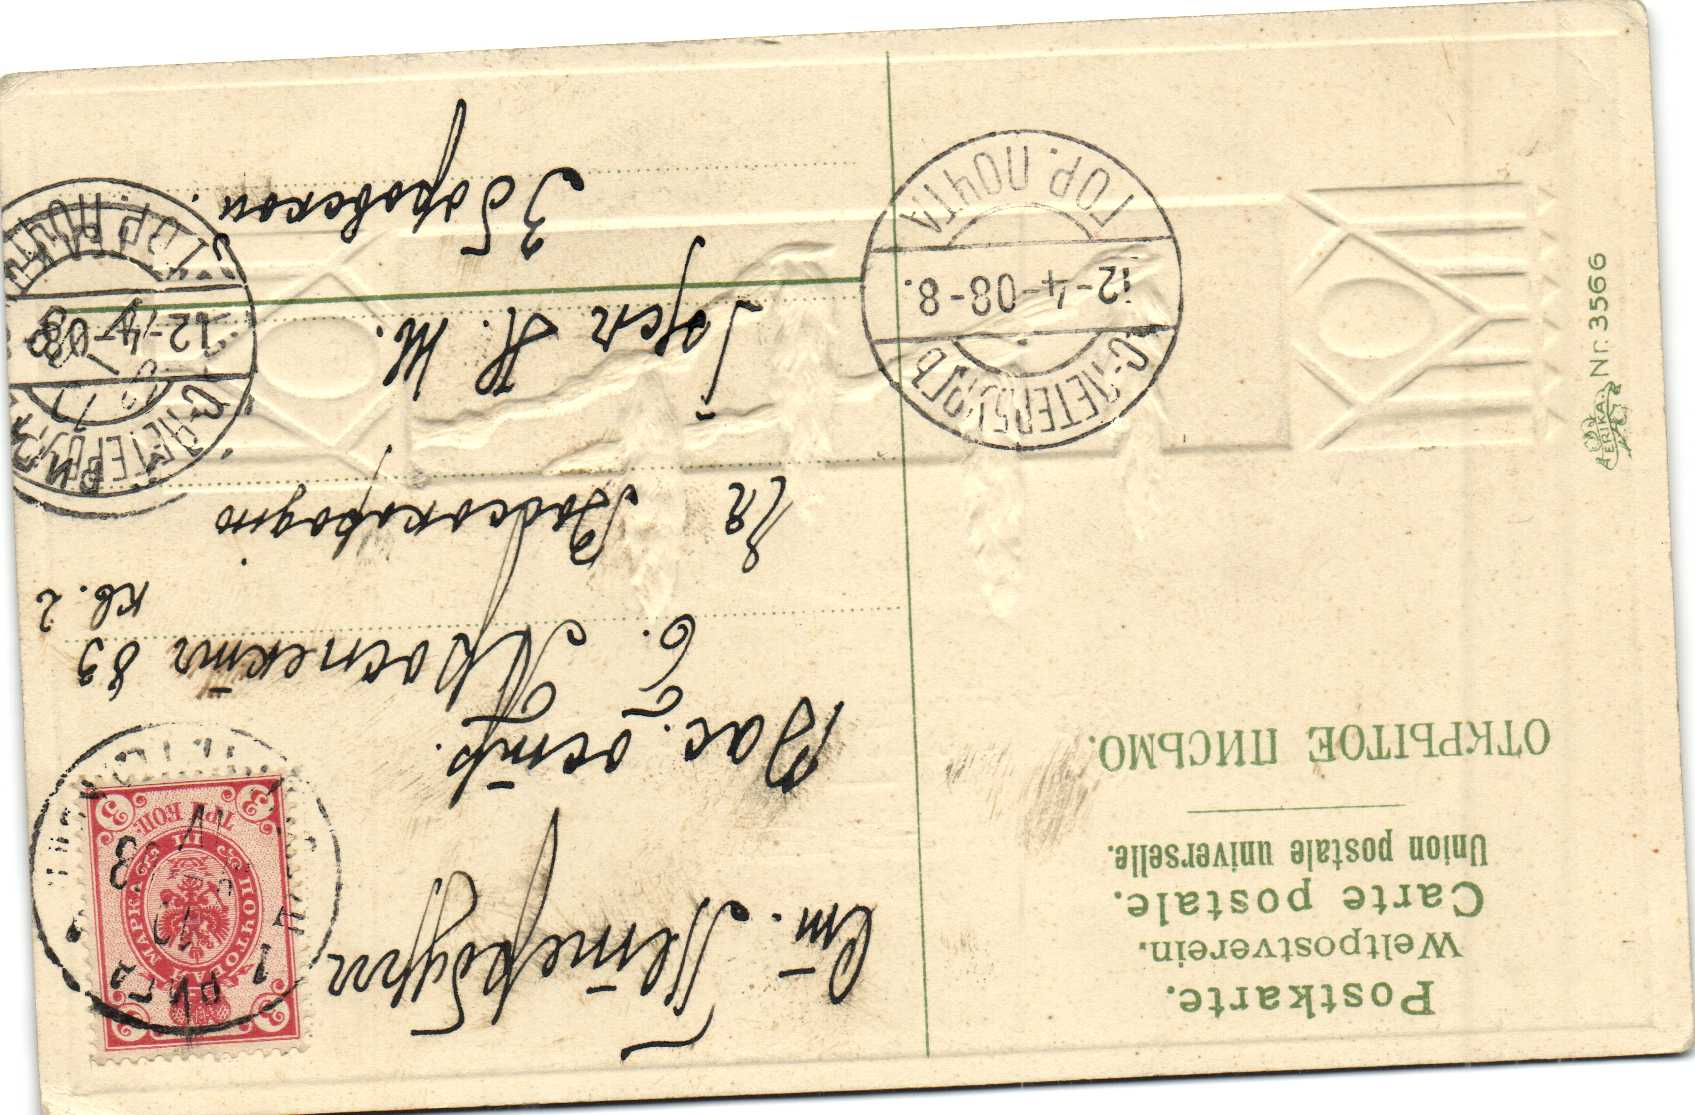 Postkarte.
Weltpostverein.
Carte postale.
Union postale universelle.
ОТКРЫТОЕ ПИСЬМО.
Ст. Петербургъ
Вас. остр.
6. Проспектъ 83
кв. 2
Ея
Н. М.
Зборовской.
С-ПЕТЕРБУРГЪ
12-4-08-8.
ГОР. ПОЧТА
С-ПЕТЕРБУРГЪ
12-4-08
ГОР. ПОЧТА
РИГА
3
ТРИ КОП.
ПОЧТОВАЯ МАРКА
ERIKA
Nr. 3566